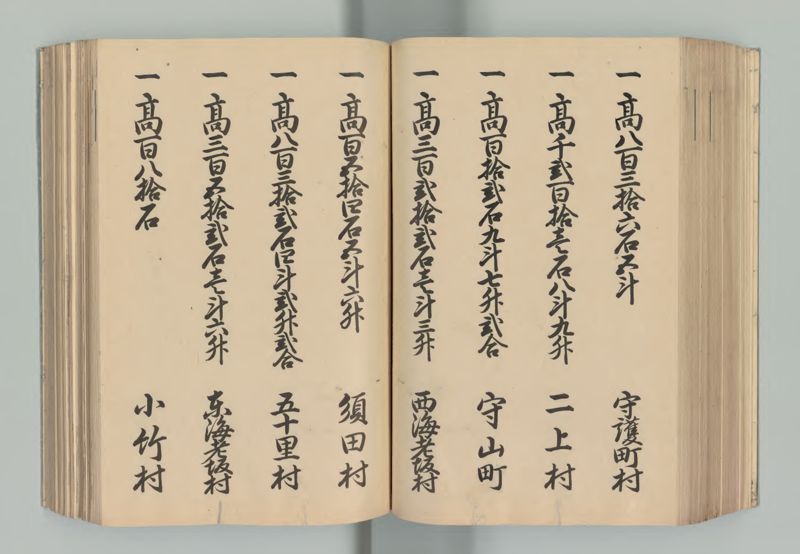 一高八百三拾六石五斗 守護町村
一高千弐百拾壱石八斗九升 二上村
一高百拾弐石九斗七升弐合 守山町
一高三百弐拾弐石壱斗三升 西海老坂村
一高百五拾四石五斗六升 須田村
一高八百三拾弐石四斗弐升弐合 五十里村
一高三百五拾弐石壱斗六升 东海老坂村
一高百八拾石 小竹村